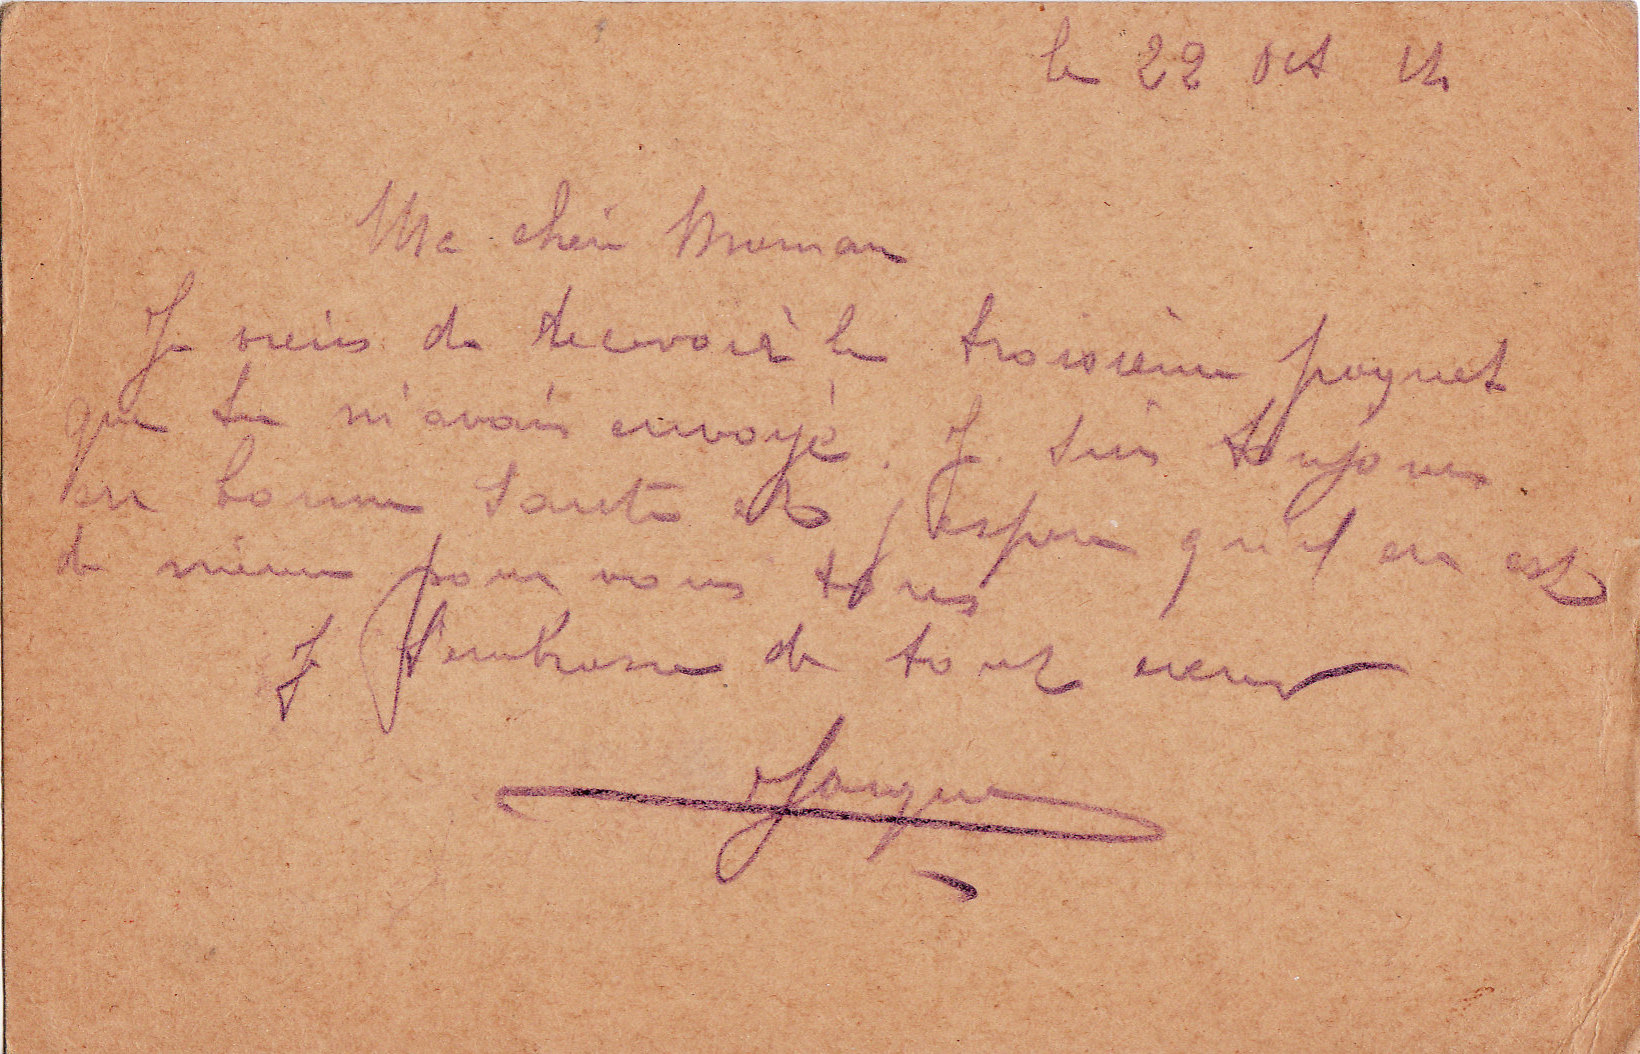 le 22 oct 14
Ma chère Maman
Je viens de recevoir le troisième paquet
que tu m'avais envoyé. Je suis toujours
en bonne santé et j'espère qu'il en est
de même pour vous tous
Je t'embrasse de tout cœur
Jacques